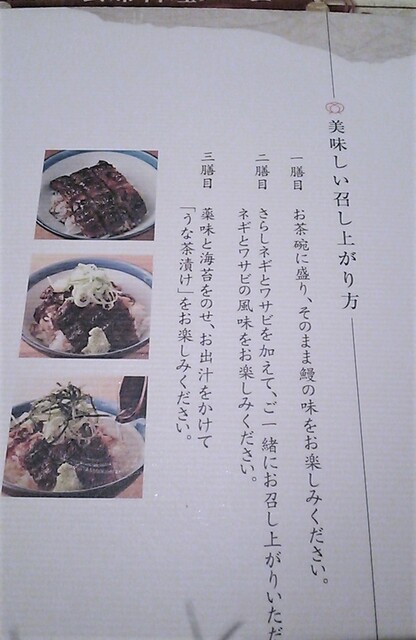 美味しい召し上がり方
一膳目 お茶碗に盛り、そのまま鰻の味をお楽しみください。
二膳目 さらしネギとワサビを加えて、ご一緒にお召し上がりいただ
ネギとワサビの風味をお楽しみください。
三膳目 薬味と海苔をのせ、お出汁をかけて
「うな茶漬け」をお楽しみください。